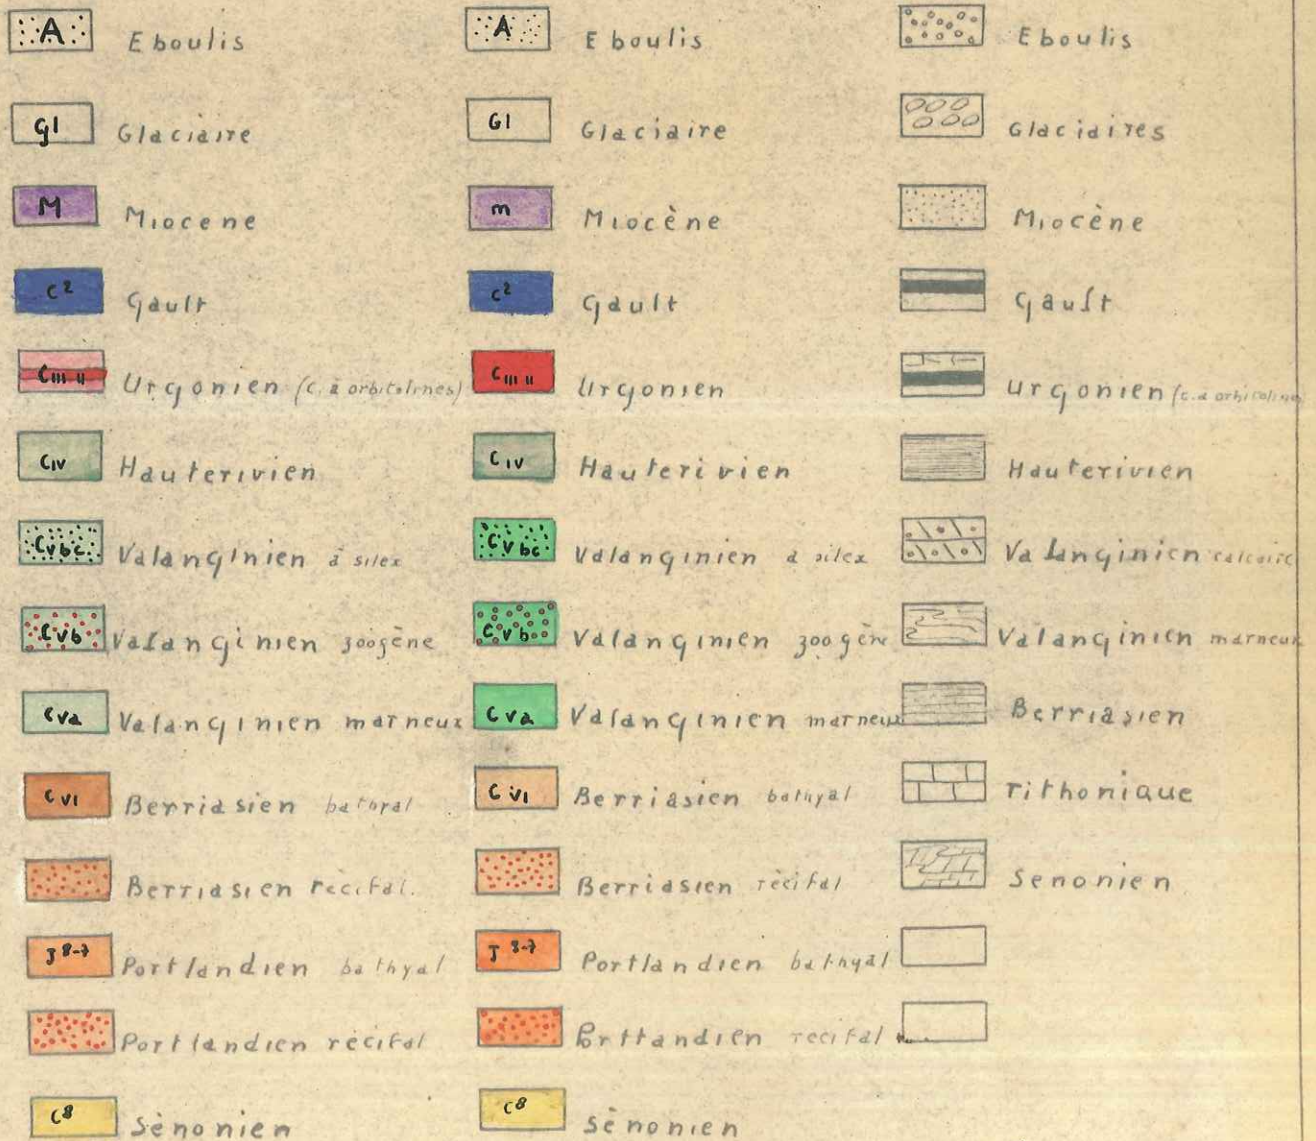 A Eboulis
gl Glaciaire
M Miocene
C2 Gault
CIII II Urgonien (c. à orbitolines)
CIV Hauterivien
Cvbc Valanginien à silex
Cvb Valanginien zoogène
Cva Valanginien marneux
CVI Berriasien bathyal
Berriasien récifal.
J8-7 Portlandien bathyal
Portlandien récifal
C8 Sènonien
A Eboulis
Gl Glaciaire
m Miocène
C2 Gault
CIII II Urgonien
CIV Hauterivien
Cvbc Valanginien à silex
Cvb Valanginien zoogène
Cva Valanginien marneux
CVI Berriasien bathyal
Berriasien récifal
J8-7 Portlandien bathyal
Porttandien récifal
C8 Sènonien
Eboulis
Glaciaires
Miocène
Gault
Urgonien (c. à orbitolines
Hauterivien
Valanginien calcaire
Valanginien marneux
Berriasien
Tithonique
Sènonien